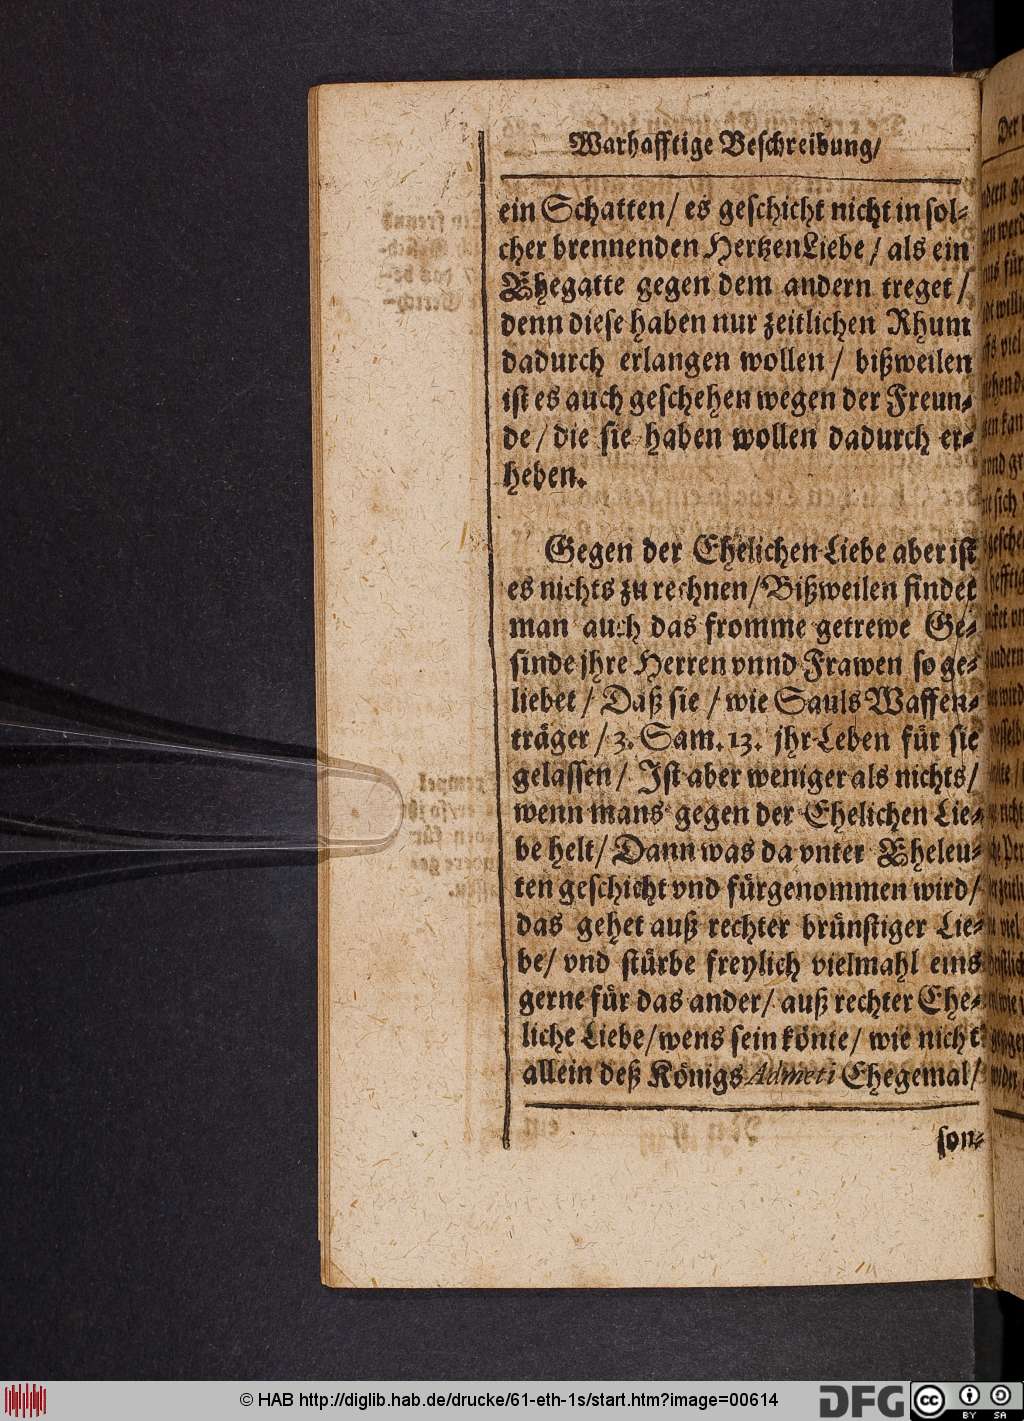 Warhafftige Beschreibung/
ein Schatten/ es geschicht nicht in sol-
cher brennenden HertzenLiebe/ als ein
Ehegatte gegen dem andern treget/
denn diese haben nur zeitlichen Rhum
dadurch erlangen wollen/ bißweilen
ist es auch geschehen wegen der Freun-
de/ die sie haben wollen dadurch er-
heben.
Gegen der Ehelichen Liebe aber ist
es nichts zu rechnen/ Bißweilen findet
man auch das fromme getrewe Ge-
sinde jhre Herren vnnd Frawen so ge-
liebet/ Daß sie/ wie Sauls Waffen-
träger/ 3. Sam. 13. jhr Leben für sie
gelassen/ Ist aber weniger als nichts/
wenn mans gegen der Ehelichen Lie-
be helt/ Dann was da vnter Eheleu-
ten geschicht vnd fürgenommen wird/
das gehet auß rechter brünstiger Lie-
be/ vnd stürbe freylich vielmahl eins
gerne für das ander/ auß rechter Ehe-
liche Liebe/ wens sein könte/ wie nicht
allein deß Königs Admeti Ehegemal/
son-
© HAB http://diglib.hab.de/drucke/61-eth-1s/start.htm?image=00614
DFG
cc
BY SA